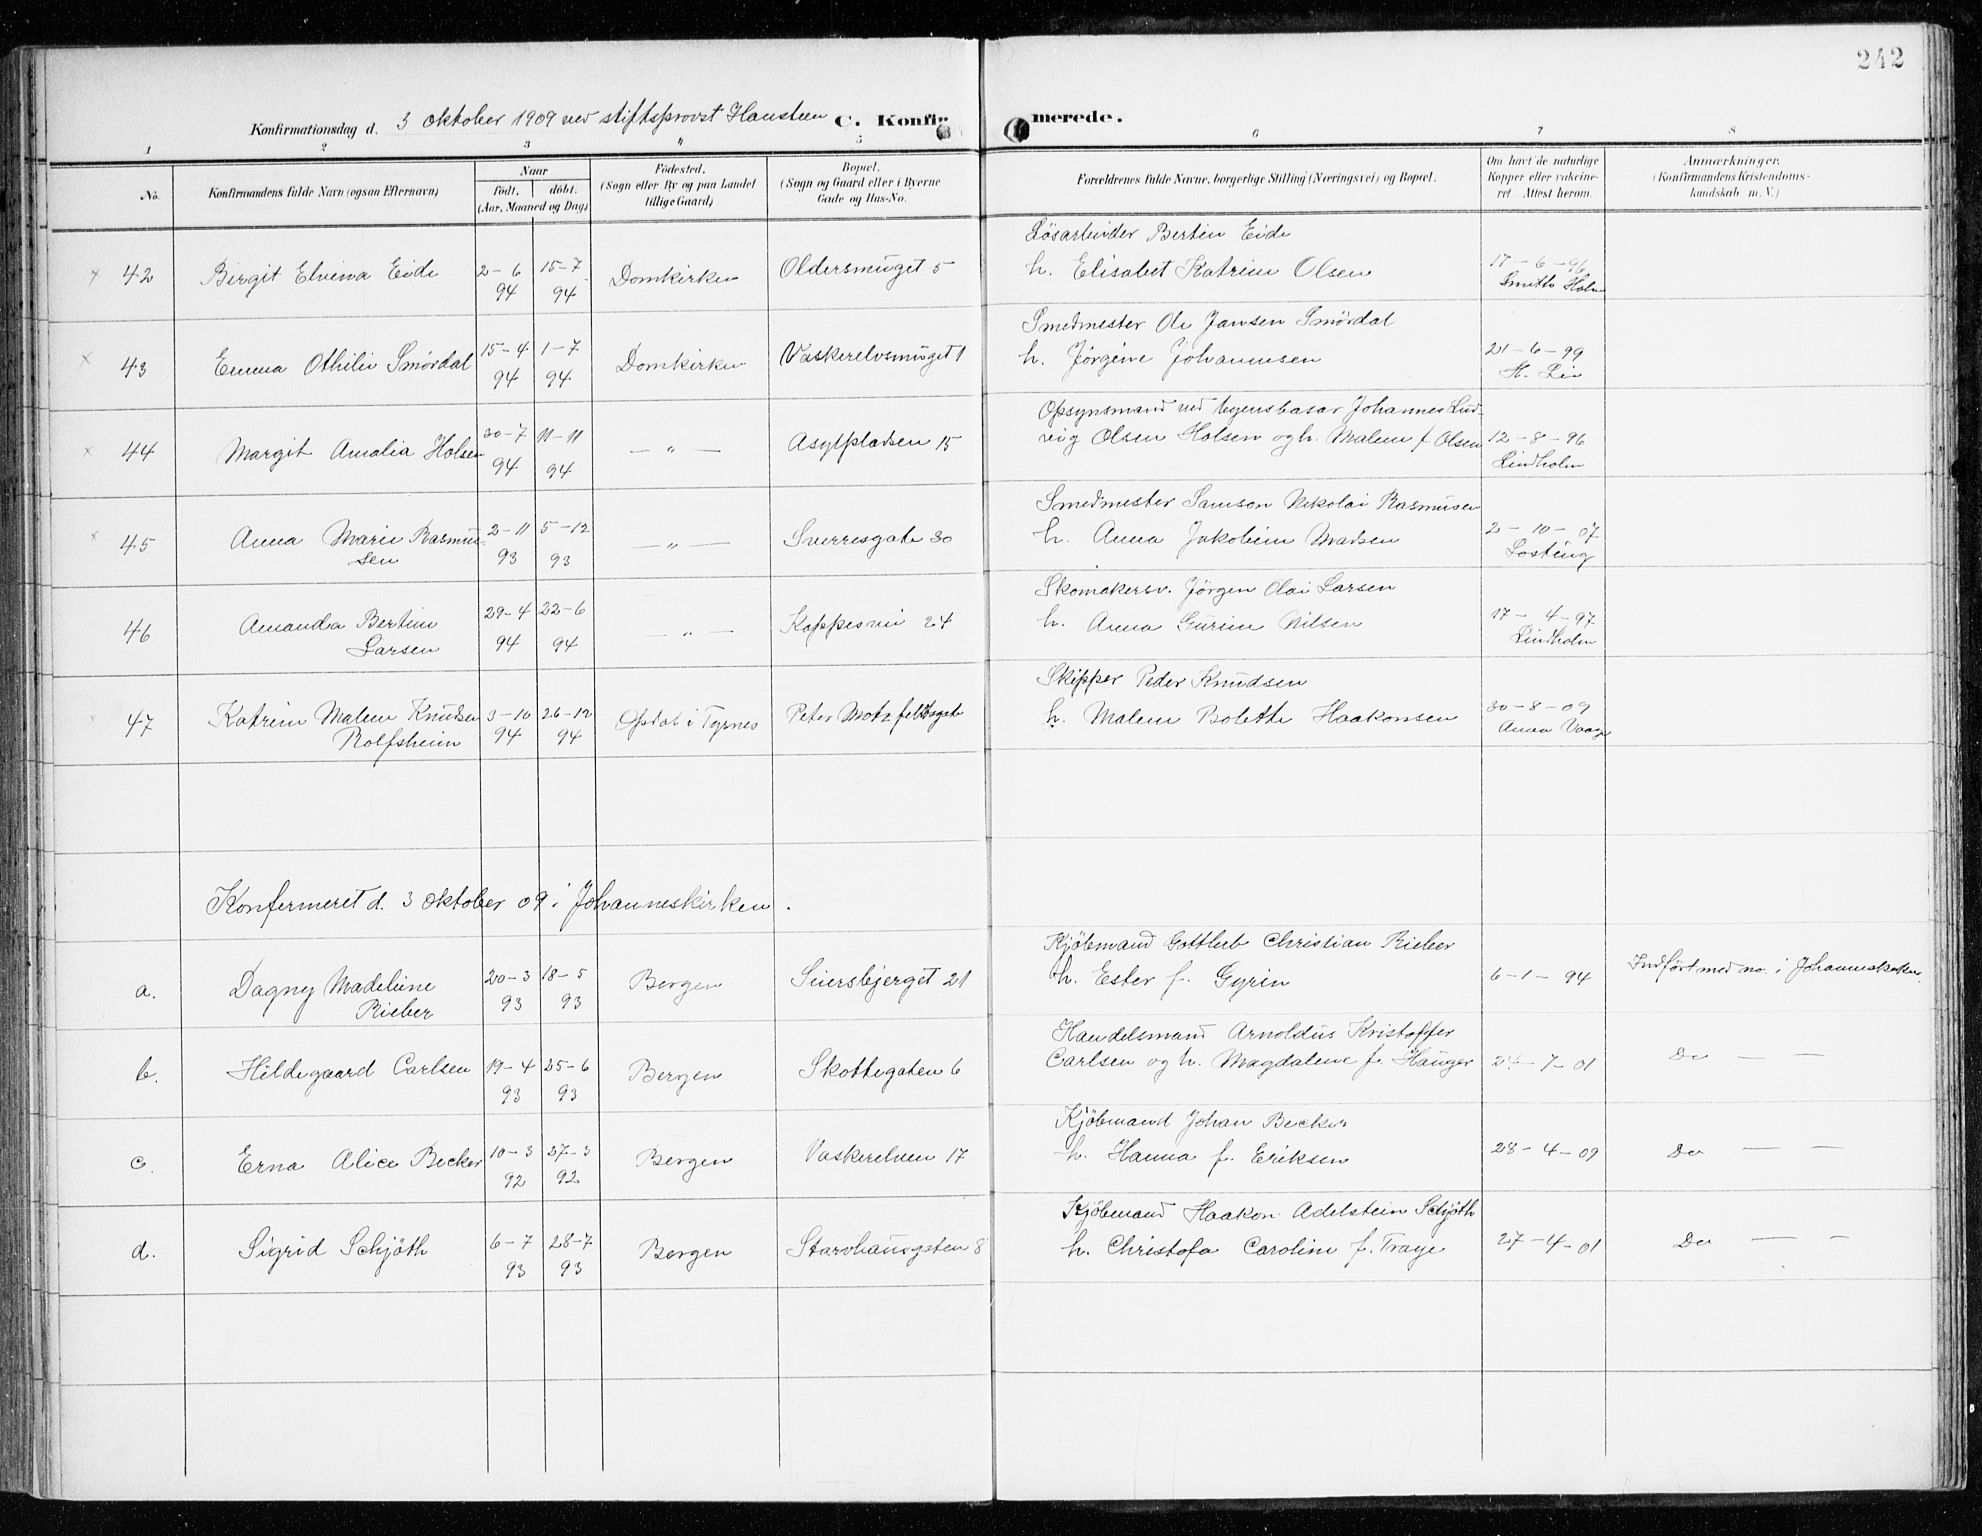 242
Konfirmationsdag d. 3 oktober 1909 ved stiftsprovst Hansteen C. Konfirmerede.
1 2 3 4 5 6 7 8
No.
Konfirmandens fulde Navn (ogsaa Efternavn)
Naar
født. døbt.
(Aar, Maaned og Dag)
Fødested.
(Sogn eller By og paa Landet
tillige Gaard)
Bopæl.
(Sogn og Gaard eller i Byerne
Gade og Hus-No.
Forældrenes fulde Navne, borgerlige Stilling (Næringsvei) og Bopæl.
Om havt de naturlige
Kopper eller vakcine-
ret. Attest herom.
Anmærkninger.
(Konfirmandens Kristendoms-
kundskab m. V.)
Løsarbeider Bertin Eide
42 Birgit Elvina Eide 2-6 15-7 Domkirken Oldersmuget 5 h. Elisabet Katrine Olsen 17-6-96
94 94 Smith Holm
Smedmester Ole Jansen Smørdal
43 Emma Othilie Smørdal 15-4 1-7 Domkirken Vaskerelvsmuget 1 h. Jørgine Johannesen 21-6-99
94 94 H. Lie
Opsynsmand ved byens basar Johannes Lud-
44 Margit Amalia Holsen 30-7 11-11 — " — Asylpladsen 15 vig Olsen Holsen og h. Malene f. Olsen 12-8-96
94 94 Lindholm
Smedmester Samson Nikolai Rasmusen
45 Anna Marie Rasmus- 2-11 5-12 — " — Sverresgate 30 h. Anna Jakobine Madsen 2-10-07
sen 93 93
Skomakersv. Jørgen Olai Larsen
46 Amanda Bertine 29-4 22-6 — " — Kappesvei 24 h. Anna Gurine Nilsen 17-4-97
Larsen 94 94 Lindholm
Skipper Peder Knudsen
47 Katrine Malene Knudsen 3-10 26-12 i Tysnes Peter Motzfeldtsgate h. Malene Bolette Haakonsen 30-8-09
Rolfsheim 94 94 Anna Vaage
Konfermeret d. 3 oktober 09 i Johanneskirken.
Kjøbmand Gottlieb Christian Rieber
a. Dagny Madeleine 20-3 18-5 Bergen Seiersbjerget 21 h. Ester f. Gyrin 6-1-94 Indført med no. i Johanneskirken
Rieber 93 93
Handelsmand Arnoldus Kristoffer
b. Hildegaard Carlsen 19-4 25-6 Bergen Skottegaten 6 Carlsen og h. Magdalene f. Hauger 24-7-01 Do — —
93 93
Kjøbmand Johan Becker
c. Erna Alice Becker 10-3 27-3 Bergen Vaskerelven 17 h. Hanna f. Eriksen 28-4-09 Do — —
92 92
Kjøbmand Haakon Adelstein Schjöth
d. Sigrid Schjöth 6-7 28-7 Bergen Starvhausgaten 8 h. Christofa Caroline f. Traye 27-4-01 Do — —
93 93